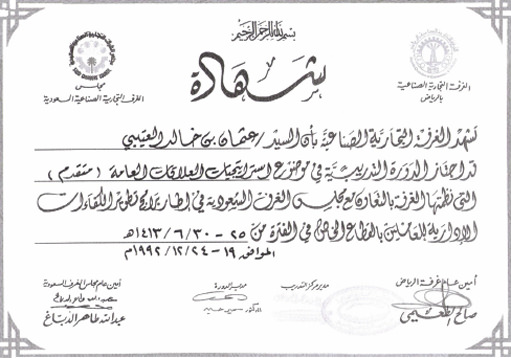 بسم الله الرحمن الرحيم
الغرفة التجارية الصناعية
بالرياض
مجلس
الغرف التجارية الصناعية السعودية
شهادة
تشهد الغرفة التجارية الصناعية بأن السيد / عثمان بن خالد العتيبي
قد اجتاز الدورة التدريبية في موضوع استراتيجيات العلاقات العامة (متقدم)
التي نظمتها الغرفة بالتعاون مع مجلس الغرف السعودية في إطار برامج تطوير الكفاءات
الإدارية للعاملين بالقطاع الخاص في الفترة من ٢٥ - ١٤١٣/٦/٣٠هـ
الموافق ١٩ - ١٩٩٢/١٢/٢٤م
أمين عام غرفة الرياض
صالح الطعيمي
مدير مركز التدريب
مدير الدورة
أمين عام مجلس الغرف السعودية
عبدالله طاهر الدباغ